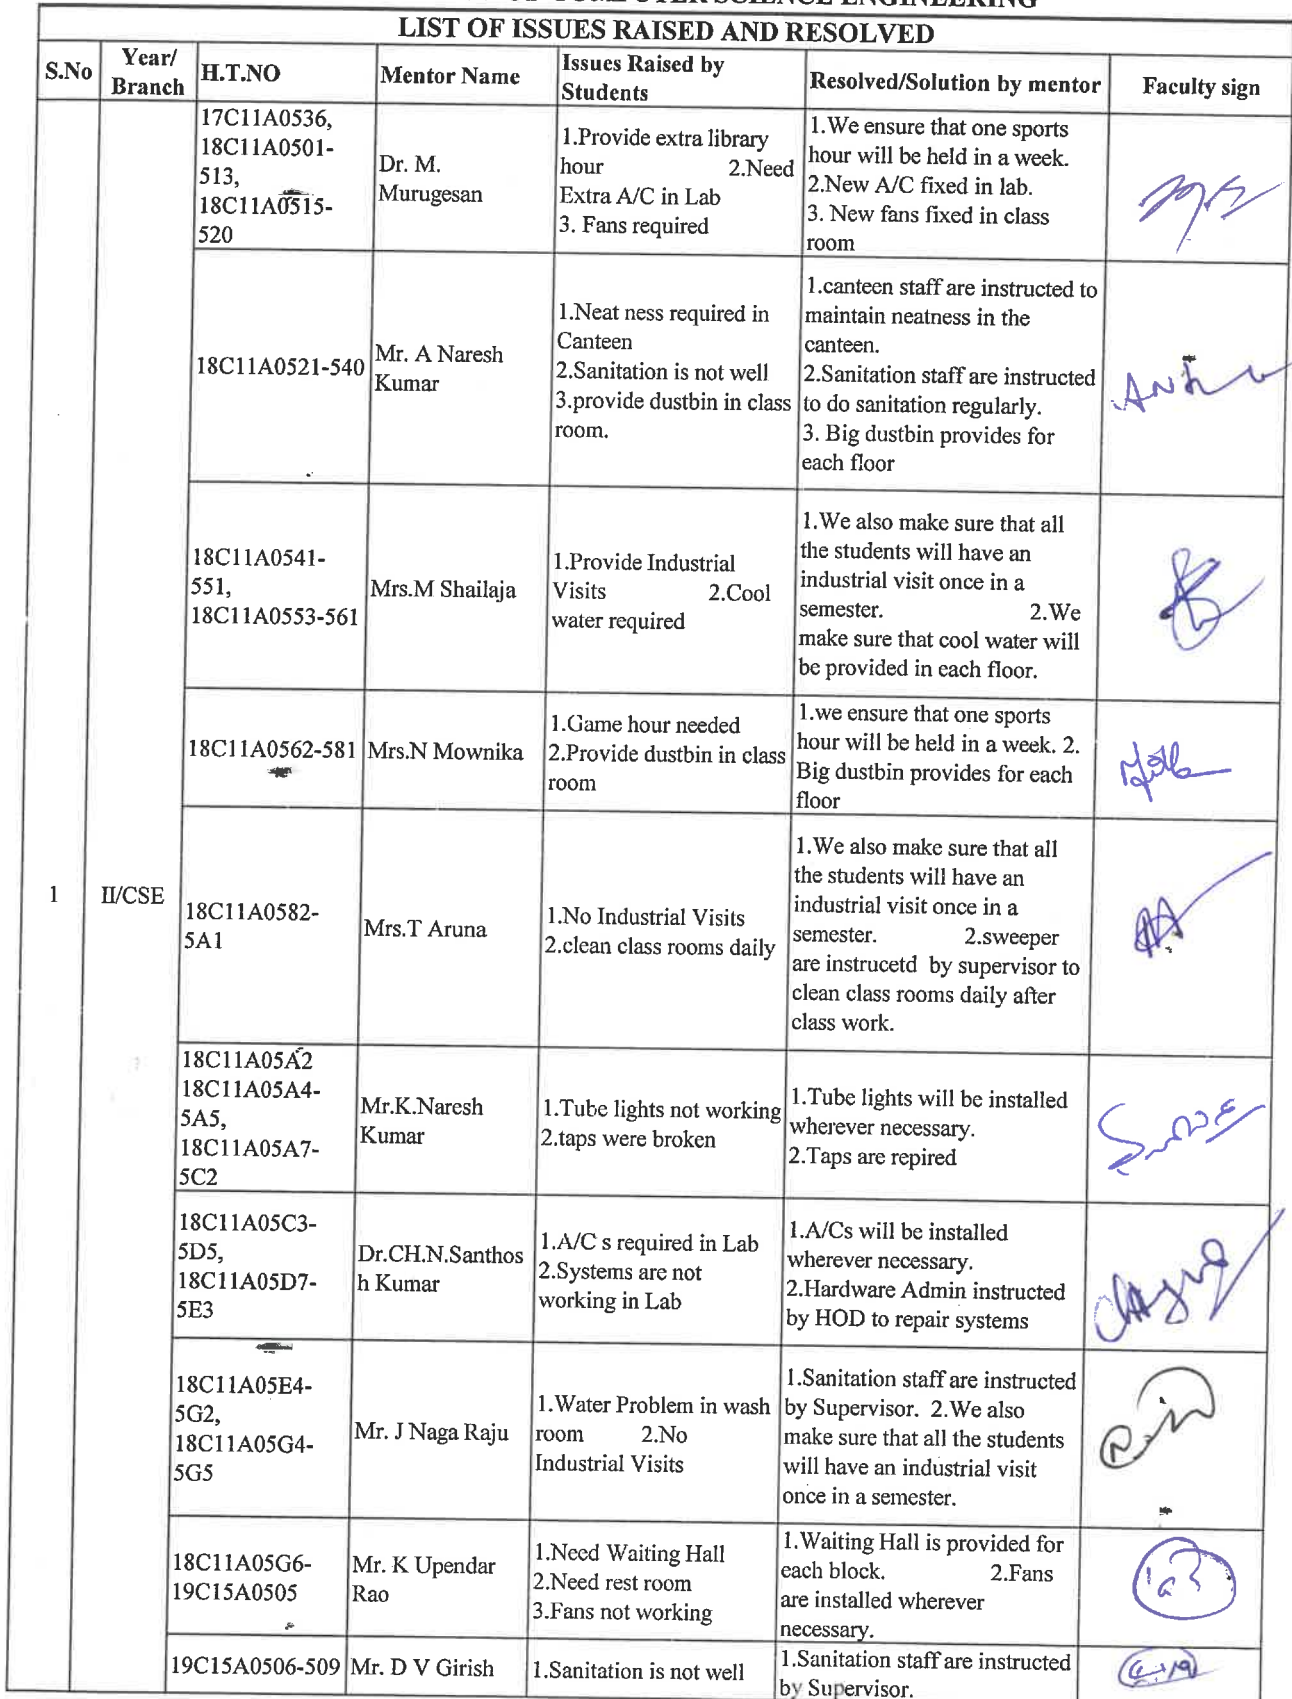 COMPUTER SCIENCE ENGINEERING
LIST OF ISSUES RAISED AND RESOLVED
S.No
Year/
Branch
H.T.NO
Mentor Name
Issues Raised by
Students
Resolved/Solution by mentor
Faculty sign
1
II/CSE
17C11A0536,
18C11A0501-
513,
18C11A0515-
520
Dr. M.
Murugesan
1.Provide extra library
hour 2.Need
Extra A/C in Lab
3. Fans required
1.We ensure that one sports
hour will be held in a week.
2.New A/C fixed in lab.
3. New fans fixed in class
room
18C11A0521-540
Mr. A Naresh
Kumar
1.Neat ness required in
Canteen
2.Sanitation is not well
3.provide dustbin in class
room.
1.canteen staff are instructed to
maintain neatness in the
canteen.
2.Sanitation staff are instructed
to do sanitation regularly.
3. Big dustbin provides for
each floor
18C11A0541-
551,
18C11A0553-561
Mrs.M Shailaja
1.Provide Industrial
Visits 2.Cool
water required
1.We also make sure that all
the students will have an
industrial visit once in a
semester. 2.We
make sure that cool water will
be provided in each floor.
18C11A0562-581
Mrs.N Mownika
1.Game hour needed
2.Provide dustbin in class
room
1.we ensure that one sports
hour will be held in a week. 2.
Big dustbin provides for each
floor
18C11A0582-
5A1
Mrs.T Aruna
1.No Industrial Visits
2.clean class rooms daily
1.We also make sure that all
the students will have an
industrial visit once in a
semester. 2.sweeper
are instrucetd by supervisor to
clean class rooms daily after
class work.
18C11A05A2
18C11A05A4-
5A5,
18C11A05A7-
5C2
Mr.K.Naresh
Kumar
1.Tube lights not working
2.taps were broken
1.Tube lights will be installed
wherever necessary.
2.Taps are repired
18C11A05C3-
5D5,
18C11A05D7-
5E3
Dr.CH.N.Santhos
h Kumar
1.A/C s required in Lab
2.Systems are not
working in Lab
1.A/Cs will be installed
wherever necessary.
2.Hardware Admin instructed
by HOD to repair systems
18C11A05E4-
5G2,
18C11A05G4-
5G5
Mr. J Naga Raju
1.Water Problem in wash
room 2.No
Industrial Visits
1.Sanitation staff are instructed
by Supervisor. 2.We also
make sure that all the students
will have an industrial visit
once in a semester.
18C11A05G6-
19C15A0505
Mr. K Upendar
Rao
1.Need Waiting Hall
2.Need rest room
3.Fans not working
1.Waiting Hall is provided for
each block. 2.Fans
are installed wherever
necessary.
19C15A0506-509
Mr. D V Girish
1.Sanitation is not well
1.Sanitation staff are instructed
by Supervisor.